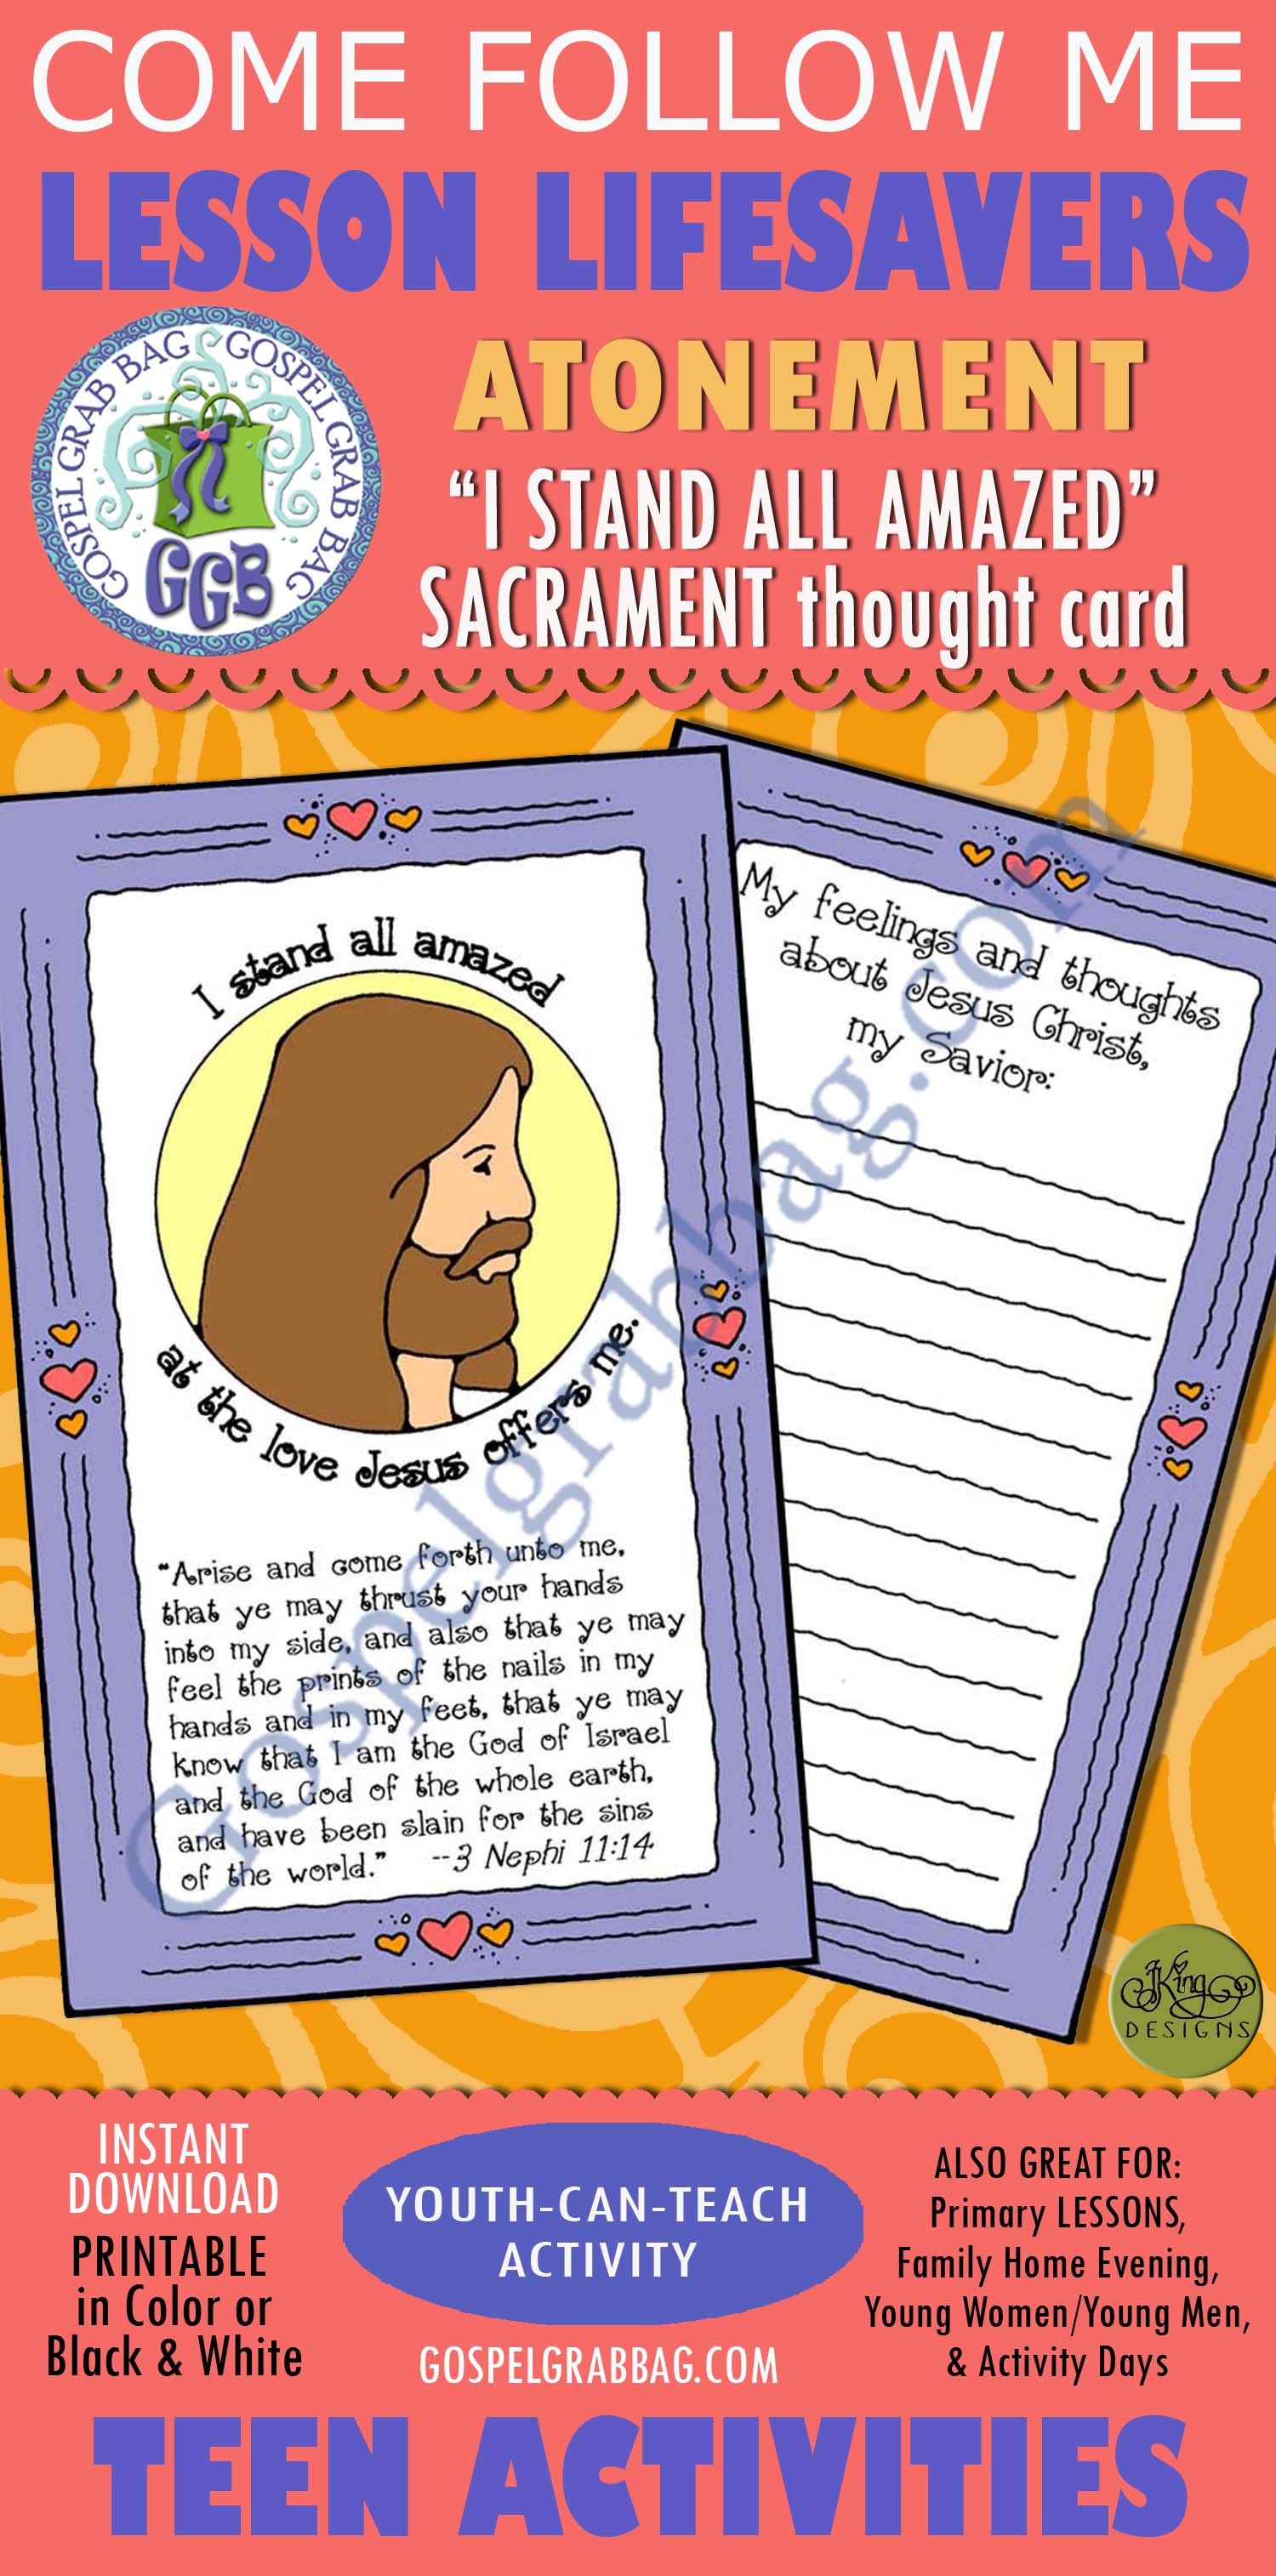 COME FOLLOW ME
LESSON LIFESAVERS
GOSPEL GRAB BAG GOSPEL GRAB BAG
GGB
ATONEMENT
“I STAND ALL AMAZED”
SACRAMENT thought card
I stand all amazed
at the love Jesus offers me.
“Arise and come forth unto me,
that ye may thrust your hands
into my side, and also that ye may
feel the prints of the nails in my
hands and in my feet, that ye may
know that I am the God of Israel
and the God of the whole earth,
and have been slain for the sins
of the world.” --3 Nephi 11:14
My feelings and thoughts
about Jesus Christ,
my Savior:
Gospelgrabbag.com
JKing
DESIGNS
INSTANT
DOWNLOAD
PRINTABLE
in Color or
Black & White
YOUTH-CAN-TEACH
ACTIVITY
GOSPELGRABBAG.COM
ALSO GREAT FOR:
Primary LESSONS,
Family Home Evening,
Young Women/Young Men,
& Activity Days
TEEN ACTIVITIES